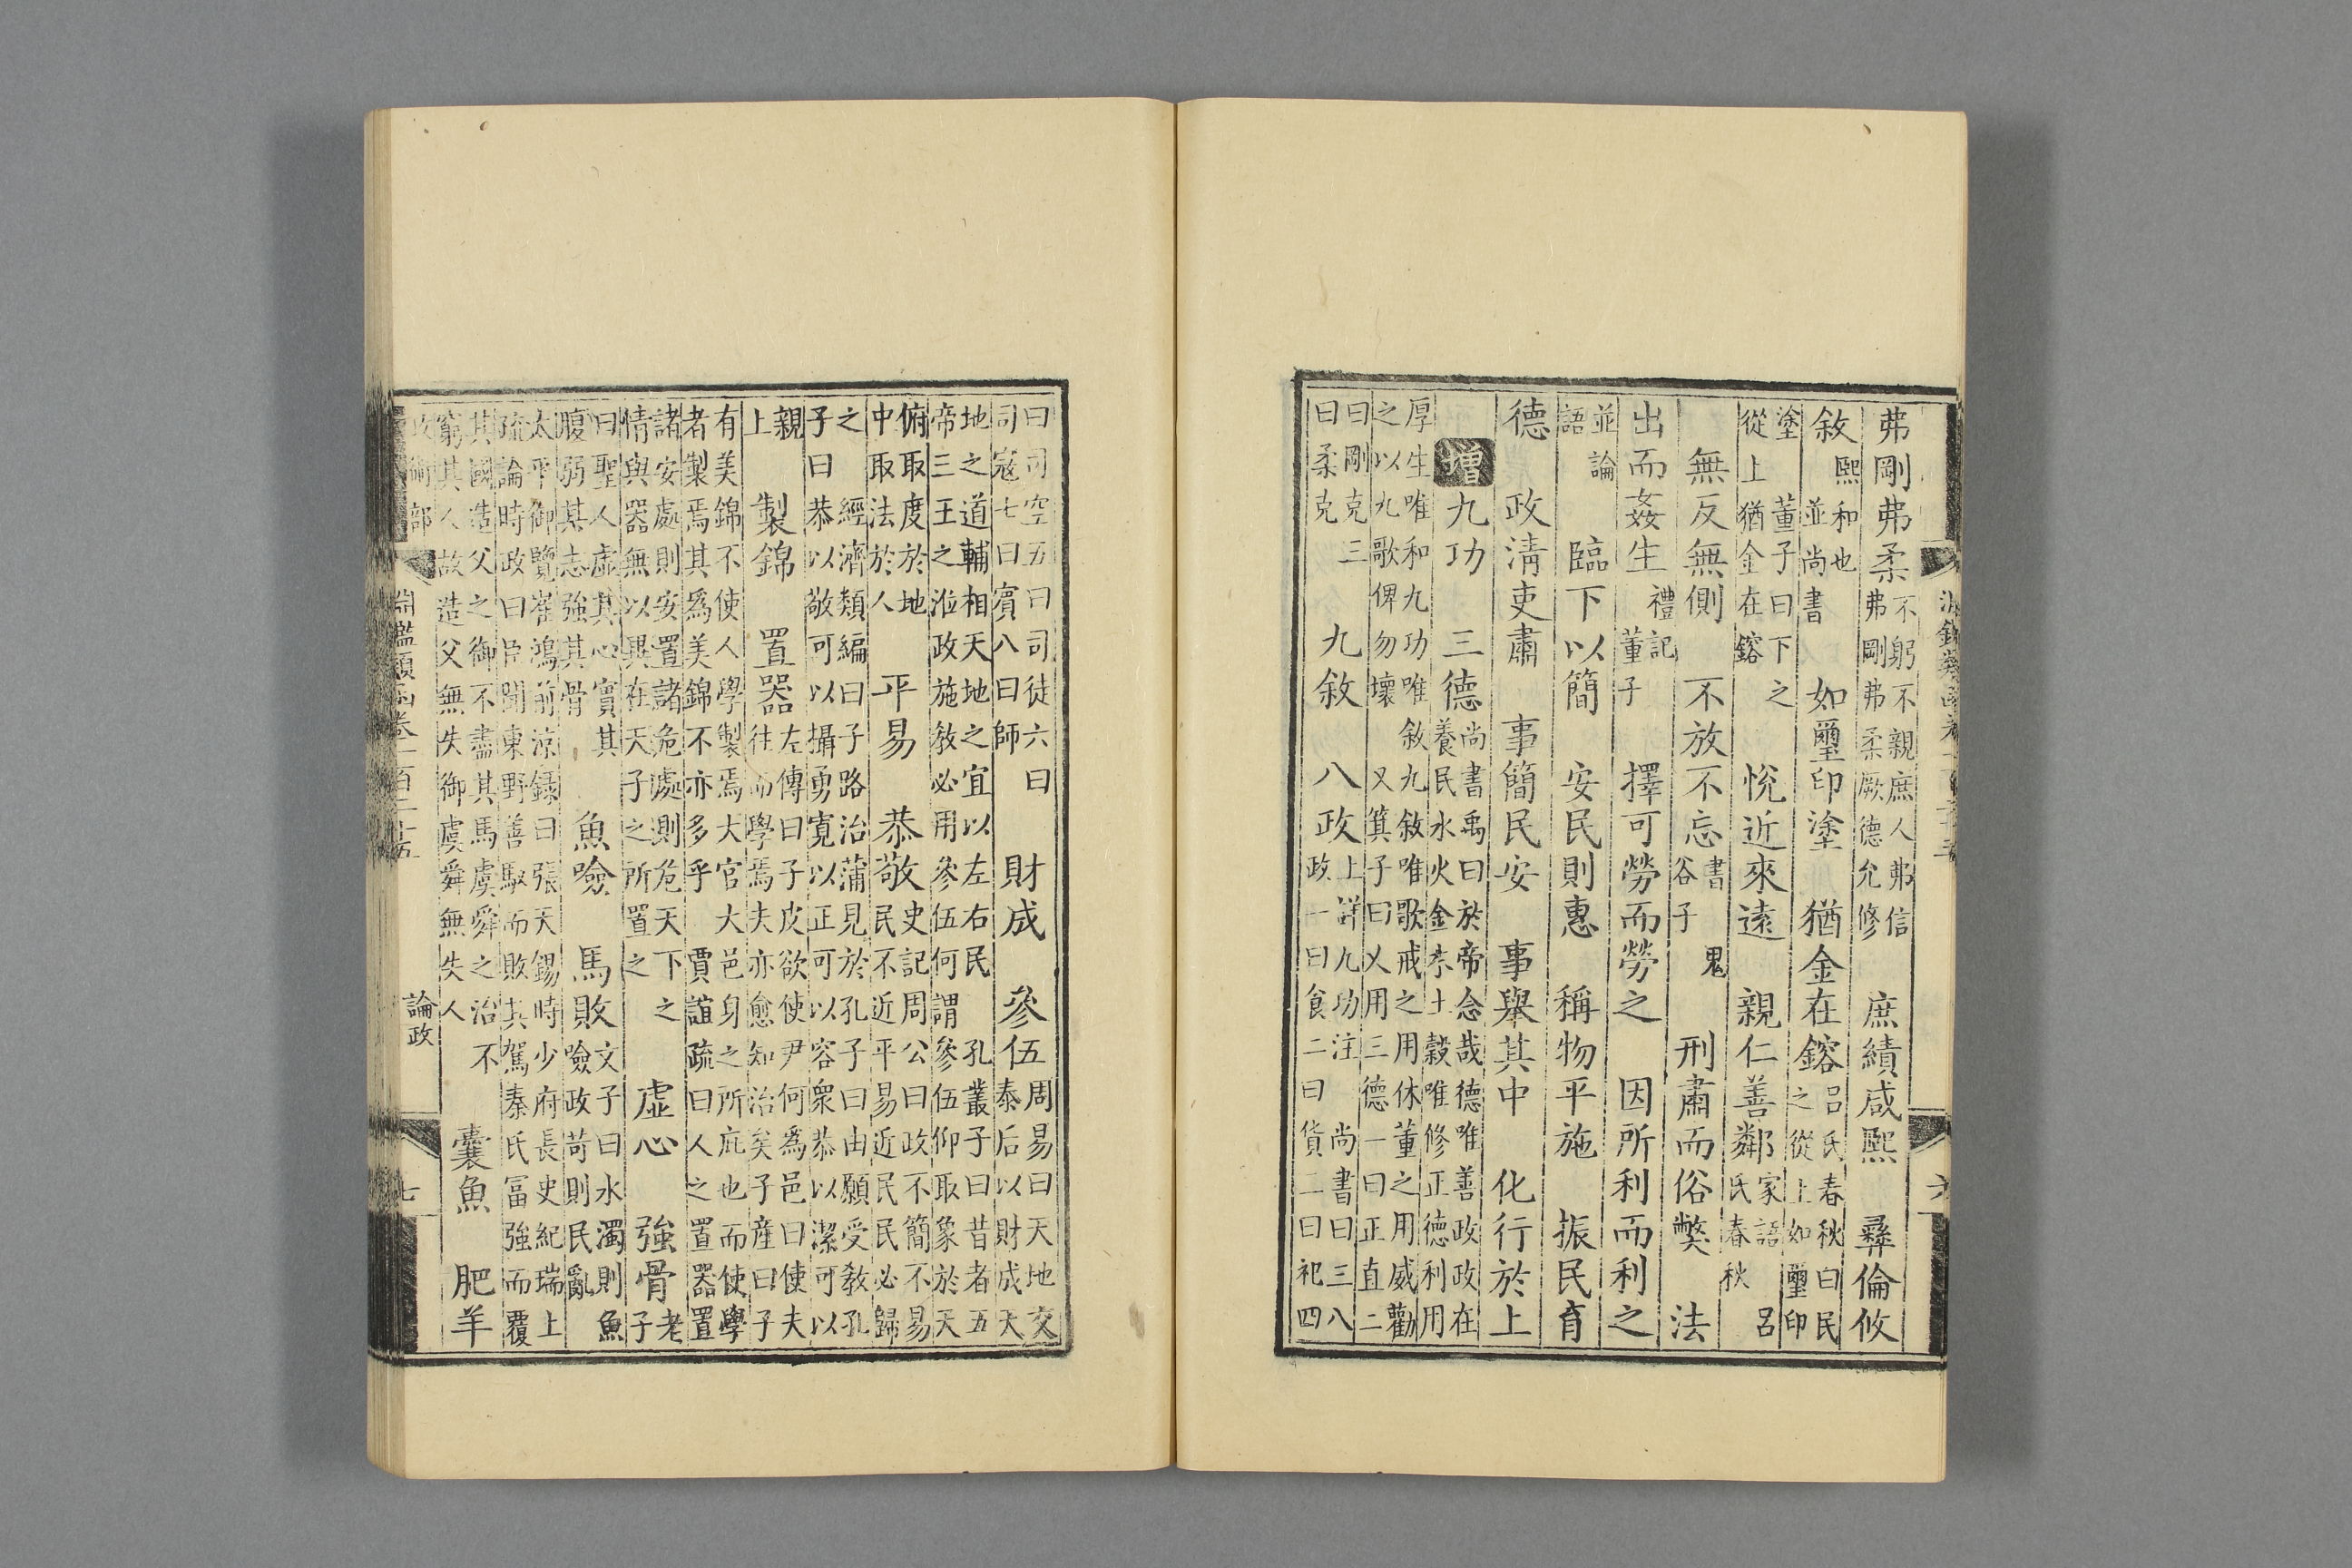 淵鑑類函卷一百二十五 六
弗剛弗柔
不躬不親庶人弗信
弗剛弗柔厥德允修
庶績咸熙 彝倫攸
敘
熙和也
並尚書
如璽印塗 猶金在鎔
呂氏春秋曰民
之從上如璽印
塗 董子曰下之
從上猶金在鎔
悅近來遠 親仁善鄰
家語 呂
氏春秋
無反無側 不放不忘
書 鬼
谷子
刑肅而俗弊 法
出而姦生
禮記
董子
擇可勞而勞之 因所利而利之
並論
語
臨下以簡 安民則惠 稱物平施 振民育
德 政淸吏肅 事簡民安 事舉其中 化行於上
增 九功 三德
尚書禹曰於帝念哉德唯善政政在
養民水火金木土穀唯修正德利用
厚生唯和九功唯敘九敘唯歌戒之用休董之用威勸
之以九歌俾勿壞 又箕子曰乂用三德一曰正直二
曰剛克三
曰柔克
九敘 八政
上詳九功注 尚書曰三八
政一曰食二曰貨二曰祀四
曰司空五曰司徒六曰
司寇七曰賓八曰師
財成 參伍
周易曰天地交
泰后以財成天
地之道輔相天地之宜以左右民 孔叢子曰昔者五
帝三王之涖政施敎必用參伍何謂參伍仰取象於天
俯取度於地
中取法於人
平易 恭敬
史記周公曰政不簡不易
民不近平易近民民必歸
之 經濟類編曰子路治蒲見於孔子曰由願受敎孔
子曰恭以敬可以攝勇寬以正可以容衆恭以潔可以
親
上
製錦 置器
左傳曰子皮欲使尹何爲邑曰使夫
往而學焉夫亦愈知治矣子產曰子
有美錦不使人學製焉大官大邑身之所庇也而使學
者製焉其爲美錦不亦多乎 賈誼疏曰人之置器置
諸安處則安置諸危處則危天下之
情與器無以異在天子之所置之
虛心 強骨
老
子
曰聖人虛其心實其
腹弱其志強其骨
魚噞 馬敗
文子曰水濁則魚
噞政苛則民亂
太平御覽崔鴻前涼錄曰張天錫時少府長史紀瑞上
疏論時政曰臣聞東野善馭而敗其駕秦氏富強而覆
其國造父之御不盡其馬虞舜之治不
窮其人故造父無失御虞舜無失人
囊魚 肥羊
政術部 淵鑑類函卷一百二十五 論政 七